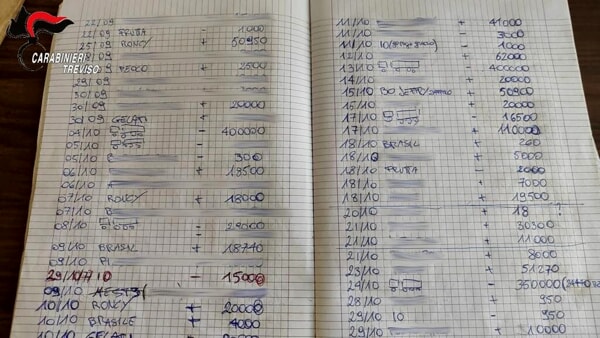 CARABINIERI
TREVISO
22/09
22/09 FRUTTA - 1000
25/09 RONCY + 50950
28/09
29/09 + 2500
29/09
30/09
30/09 + 20000
30/09 GELATI +
04/10 - 400000
05/10 -
05/10 - 300
06/10 + 19500
06/10
07/10 RONCY + 18000
07/10 B
08/10 - 29000
09/10 BRASIL + 18710
09/10 PI
29/10 - 15000
09/10
10/10 RONCY + 20000
10/10 BRASILE + 4000
10/10 GELATI +
11/10 + 41000
11/10 - 3000
11/10 IO - 1000
12/10 + 62000
13/10 - 400000
14/10 + 20000
15/10 + 50900
16/10 + 20000
17/10 - 16500
17/10 + 110000
18/10 BRASIL + 260
18/10 + 5000
18/10 FRUTTA - 2000
18/10 + 7000
18/10 + 19500
20/10 + 18 ?
21/10 + 30300
21/10 + 11000
21/10 + 8000
23/10 + 51270
24/10 - 350000
28/10 + 950
29/10 IO - 950
29/10 + 10000